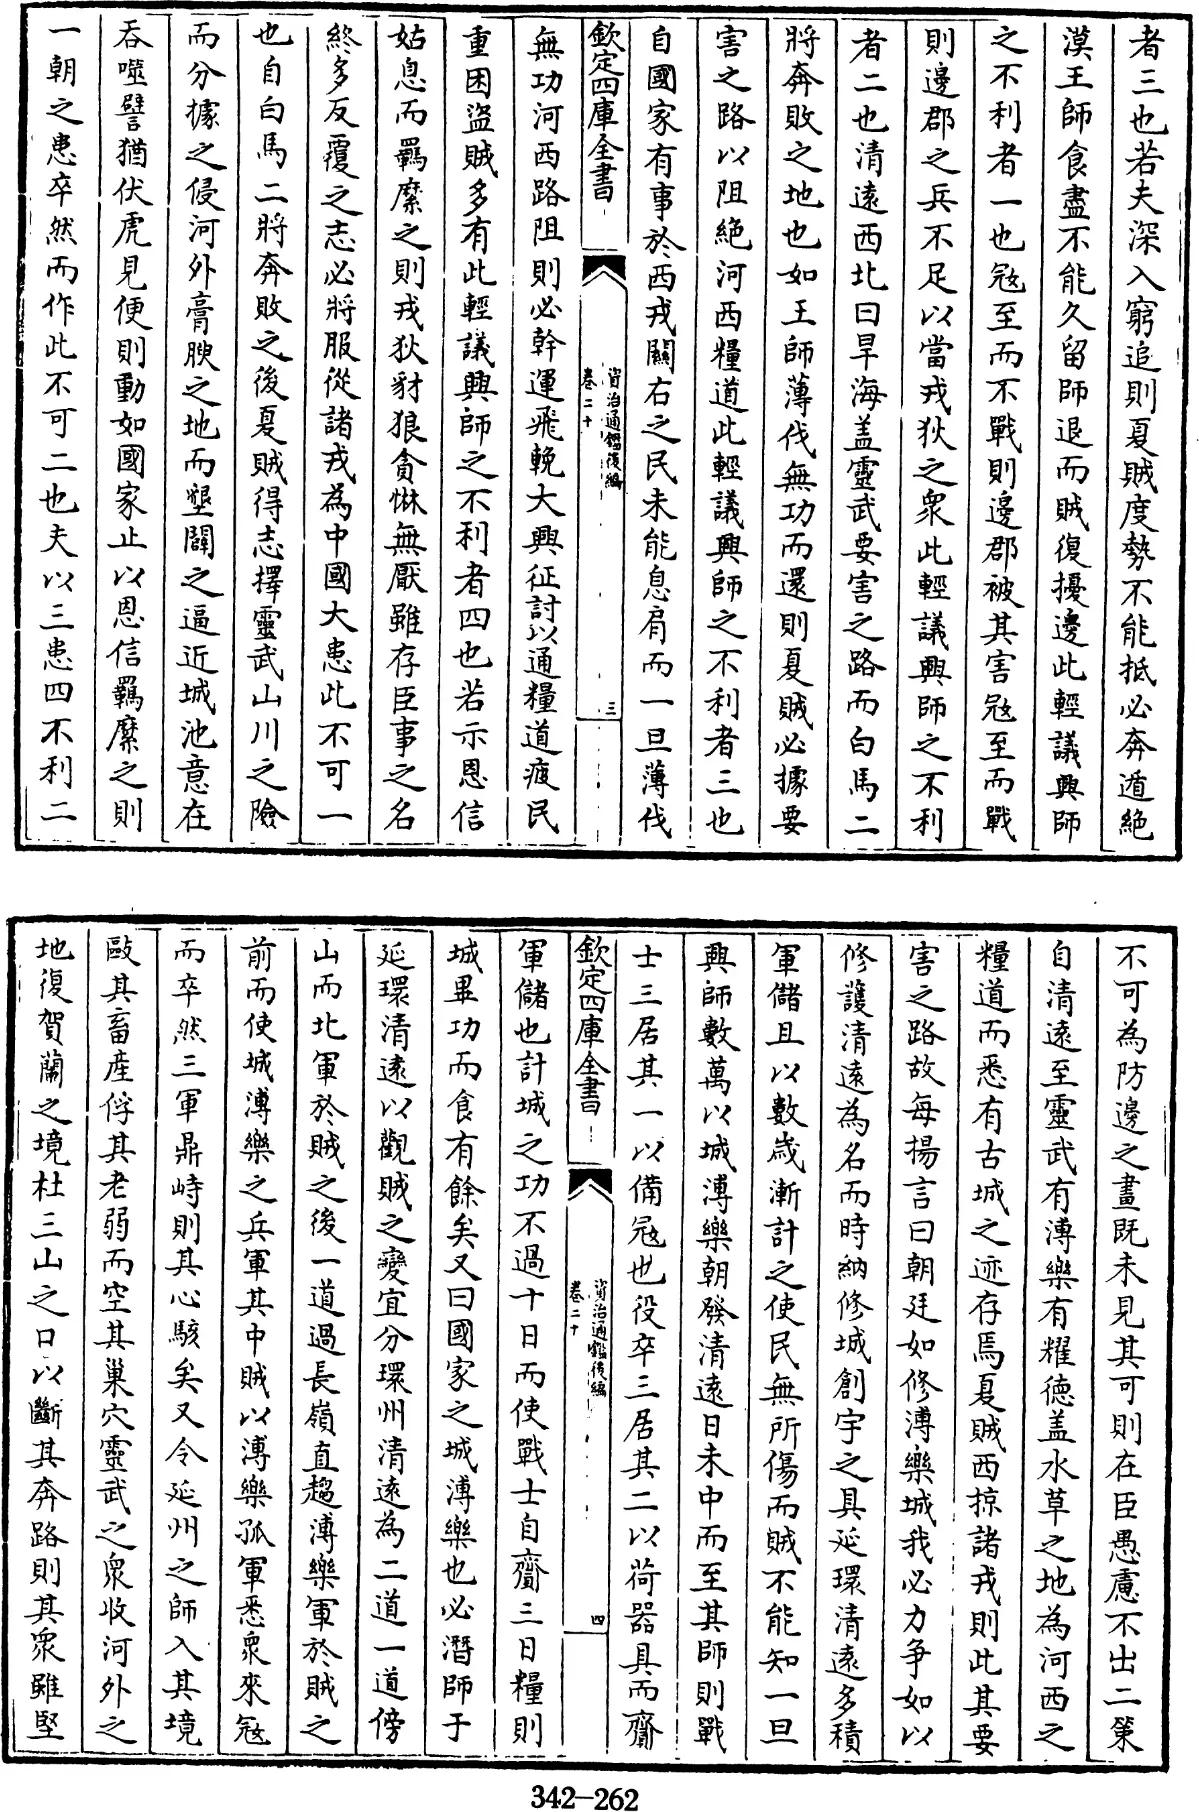 者三也若夫深入窮追則夏賊度勢不能抵必奔遁絶
漠王師食盡不能久留師退而賊復擾邊此輕議興師
之不利者一也冦至而不戰則邊郡被其害冦至而戰
則邊郡之兵不足以當戎狄之衆此輕議興師之不利
者二也清遠西北曰旱海盖靈武要害之路而白馬二
將奔敗之地也如王師薄伐無功而還則夏賊必據要
害之路以阻絶河西糧道此輕議興師之不利者三也
自國家有事於西戎關右之民未能息肩而一旦薄伐
欽定四庫全書
資治通鑑後編
卷二十
三
無功河西路阻則必幹運飛輓大興征討以通糧道疲民
重困盜賊多有此輕議興師之不利者四也若示恩信
姑息而羈縻之則戎狄豺狼貪惏無厭雖存臣事之名
終多反覆之志必將服從諸戎為中國大患此不可一
也自白馬二將奔敗之後夏賊得志擇靈武山川之險
而分據之侵河外膏腴之地而墾闢之逼近城池意在
吞噬譬猶伏虎見便則動如國家止以恩信羈縻之則
一朝之患卒然而作此不可二也夫以三患四不利二
不可為防邊之畫既未見其可則在臣愚慮不出二策
自清遠至靈武有溥樂有耀徳盖水草之地為河西之
糧道而悉有古城之迹存焉夏賊西掠諸戎則此其要
害之路故每揚言曰朝廷如修溥樂城我必力爭如以
修護清遠為名而時納修城創宇之具延環清遠多積
軍儲且以數歳漸計之使民無所傷而賊不能知一旦
興師數萬以城溥樂朝發清遠日未中而至其師則戰
士三居其一以備冦也役卒三居其二以荷器具而齎
欽定四庫全書
資治通鑑後編
卷二十
四
軍儲也計城之功不過十日而使戰士自齎三日糧則
城畢功而食有餘矣又曰國家之城溥樂也必潛師于
延環清遠以觀賊之變宜分環州清遠為二道一道傍
山而北軍於賊之後一道過長嶺直趨溥樂軍於賊之
前而使城溥樂之兵軍其中賊以溥樂孤軍悉衆來冦
而卒然三軍鼎峙則其心駭矣又令延州之師入其境
敺其畜産俘其老弱而空其巢穴靈武之衆收河外之
地復賀蘭之境杜三山之口以斷其奔路則其衆雖堅
342-262